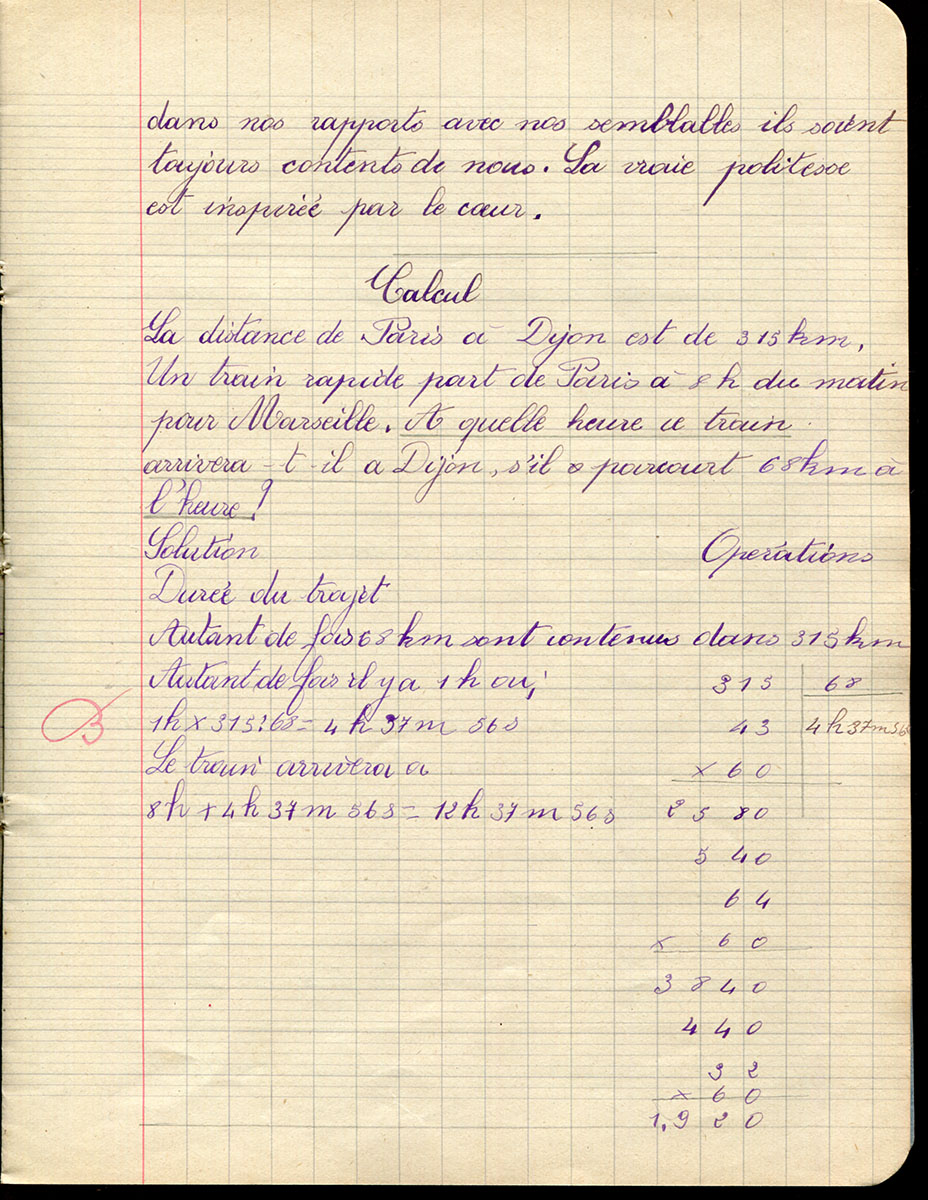 dans nos rapports avec nos semblables ils soient
toujours contents de nous. La vraie politesse
est inspirée par le cœur.
Calcul
La distance de Paris à Dijon est de 315 km.
Un train rapide part de Paris à 8 h du matin
pour Marseille. A quelle heure ce train
arrivera-t-il a Dijon, s'il parcourt 68 km à
l'heure?
Solution Opérations
Durée du trajet
Autant de fois 68 km sont contenus dans 315 km
Autant de fois il y a 1 h ou; 315 68
B
1h x 315:68 = 4 h 37 m 56s 43 4 h 37 m 56s
Le train arrivera a x 60
8h + 4h 37 m 56s = 12h 37 m 56s 2580
540
64
x 60
3840
440
32
x 60
1,920